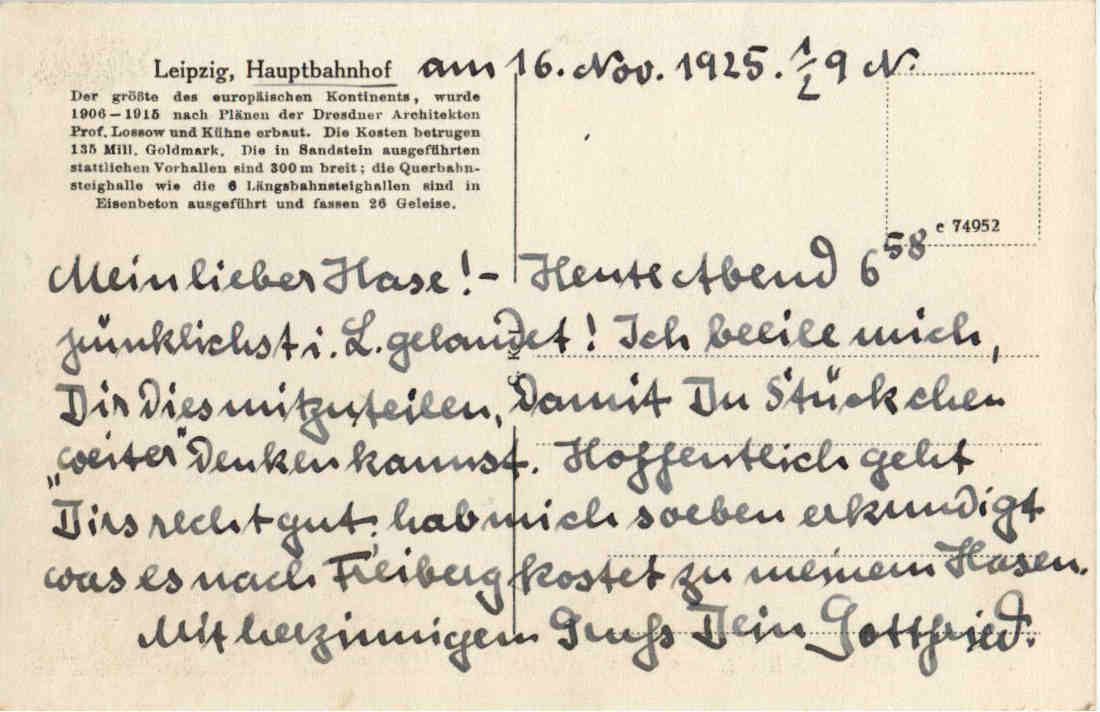 Leipzig, Hauptbahnhof am 16. Nov. 1925. ½9 N.
Der größte des europäischen Kontinents, wurde
1906–1915 nach Plänen der Dresdner Architekten
Prof. Lossow und Kühne erbaut. Die Kosten betrugen
135 Mill. Goldmark. Die in Sandstein ausgeführten
stattlichen Vorhallen sind 300 m breit; die Querbahn-
steighalle wie die 6 Längsbahnsteighallen sind in
Eisenbeton ausgeführt und fassen 26 Geleise.
e 74952
Mein lieber Hase! – Heute Abend 6⁵⁸
pünklichst i. L. gelandet! Ich beeile mich,
Dir dies mitzuteilen, damit Du Stückchen
„weiter" denken kannst. Hoffentlich geht
Dirs recht gut; hab mich soeben erkundigt
was es nach Freiberg kostet zu meinem Hasen.
Mit herzinnigem Gruß Dein Gottfried.